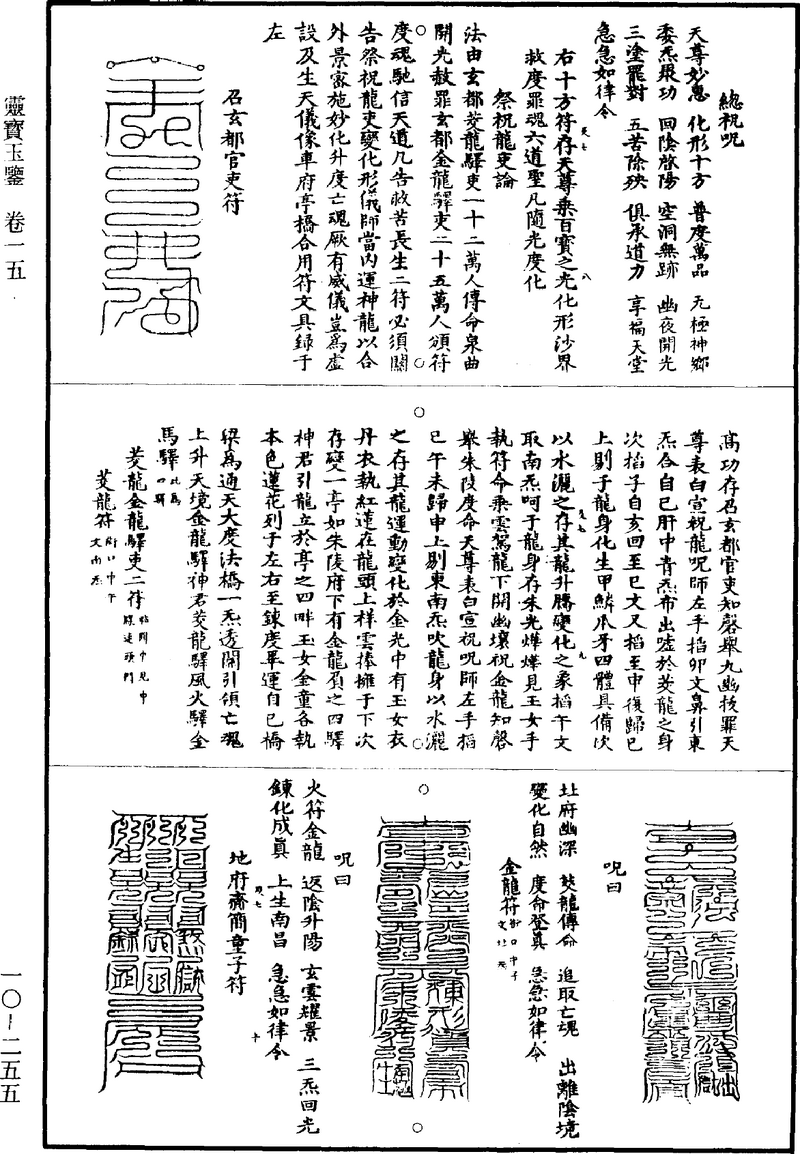 總祝呪
天尊妙惠　化形十方　普度萬品　无極神鄉
委炁聚功　回陰啟陽　空洞無跡　幽夜開光
三塗罷對　五苦除殃　俱承道力　享福天堂
急急如律令
右十方符存天尊乘百寶之光化形沙界
救度罪魂六道聖凡隨光度化
祭祝龍吏論
法由玄都茭龍驛吏一十二萬人傳命泉曲
開光赦罪玄都金龍驛吏二十五萬人頒符
度魂馳信天道凡告救苦長生二符必須關
告祭祝龍吏變化形儀師當內運神龍以合
外景密施妙化升度亡魂厥有威儀豈為虛
設及生天儀像車府亭橋合用符文具錄于
左
召玄都官吏符
高功存召玄都官吏知磬舉九幽拔罪天
尊表白宣祝龍呪師左手掐卯文鼻引東
炁合自己肝中青炁布出噓於茭龍之身
次掐子自亥回至巳文又掐至申復歸巳
上剔于龍身化生甲鱗爪牙四體具備次
以水灑之存其龍升騰變化之象掐午文
取南炁呵于龍身存朱光燁燁見玉女手
執符命乘雲駕龍下開幽壤祝金龍知磬
舉朱陵度命天尊表白宣祝呪師左手掐
巳午未歸申上剔東南炁吹龍身以水灑
之存其龍運動變化於金光中有玉女衣
丹衣執紅蓮在龍頭上祥雲捧擁于下次
存變一亭如朱陵府下有金龍負之四驛
神君引龍立於亭之四畔玉女金童各執
本色蓮花列于左右至鍊度畢運自己橋
梁為通天大度法橋一炁透開引領亡魂
上升天境金龍驛神君茭龍驛風火驛金
馬驛此為四驛
茭龍金龍驛吏二符
茭龍符
呪曰
北府幽深　茭龍傳命　追取亡魂　出離陰境
變化自然　度命登真　急急如律令
金龍符
呪曰
火符金龍　返陰升陽　玄雲耀景　三炁回光
鍊化成真　上生南昌　急急如律令
地府齋簡童子符
靈寶玉鑒　卷一五
一〇－二五五